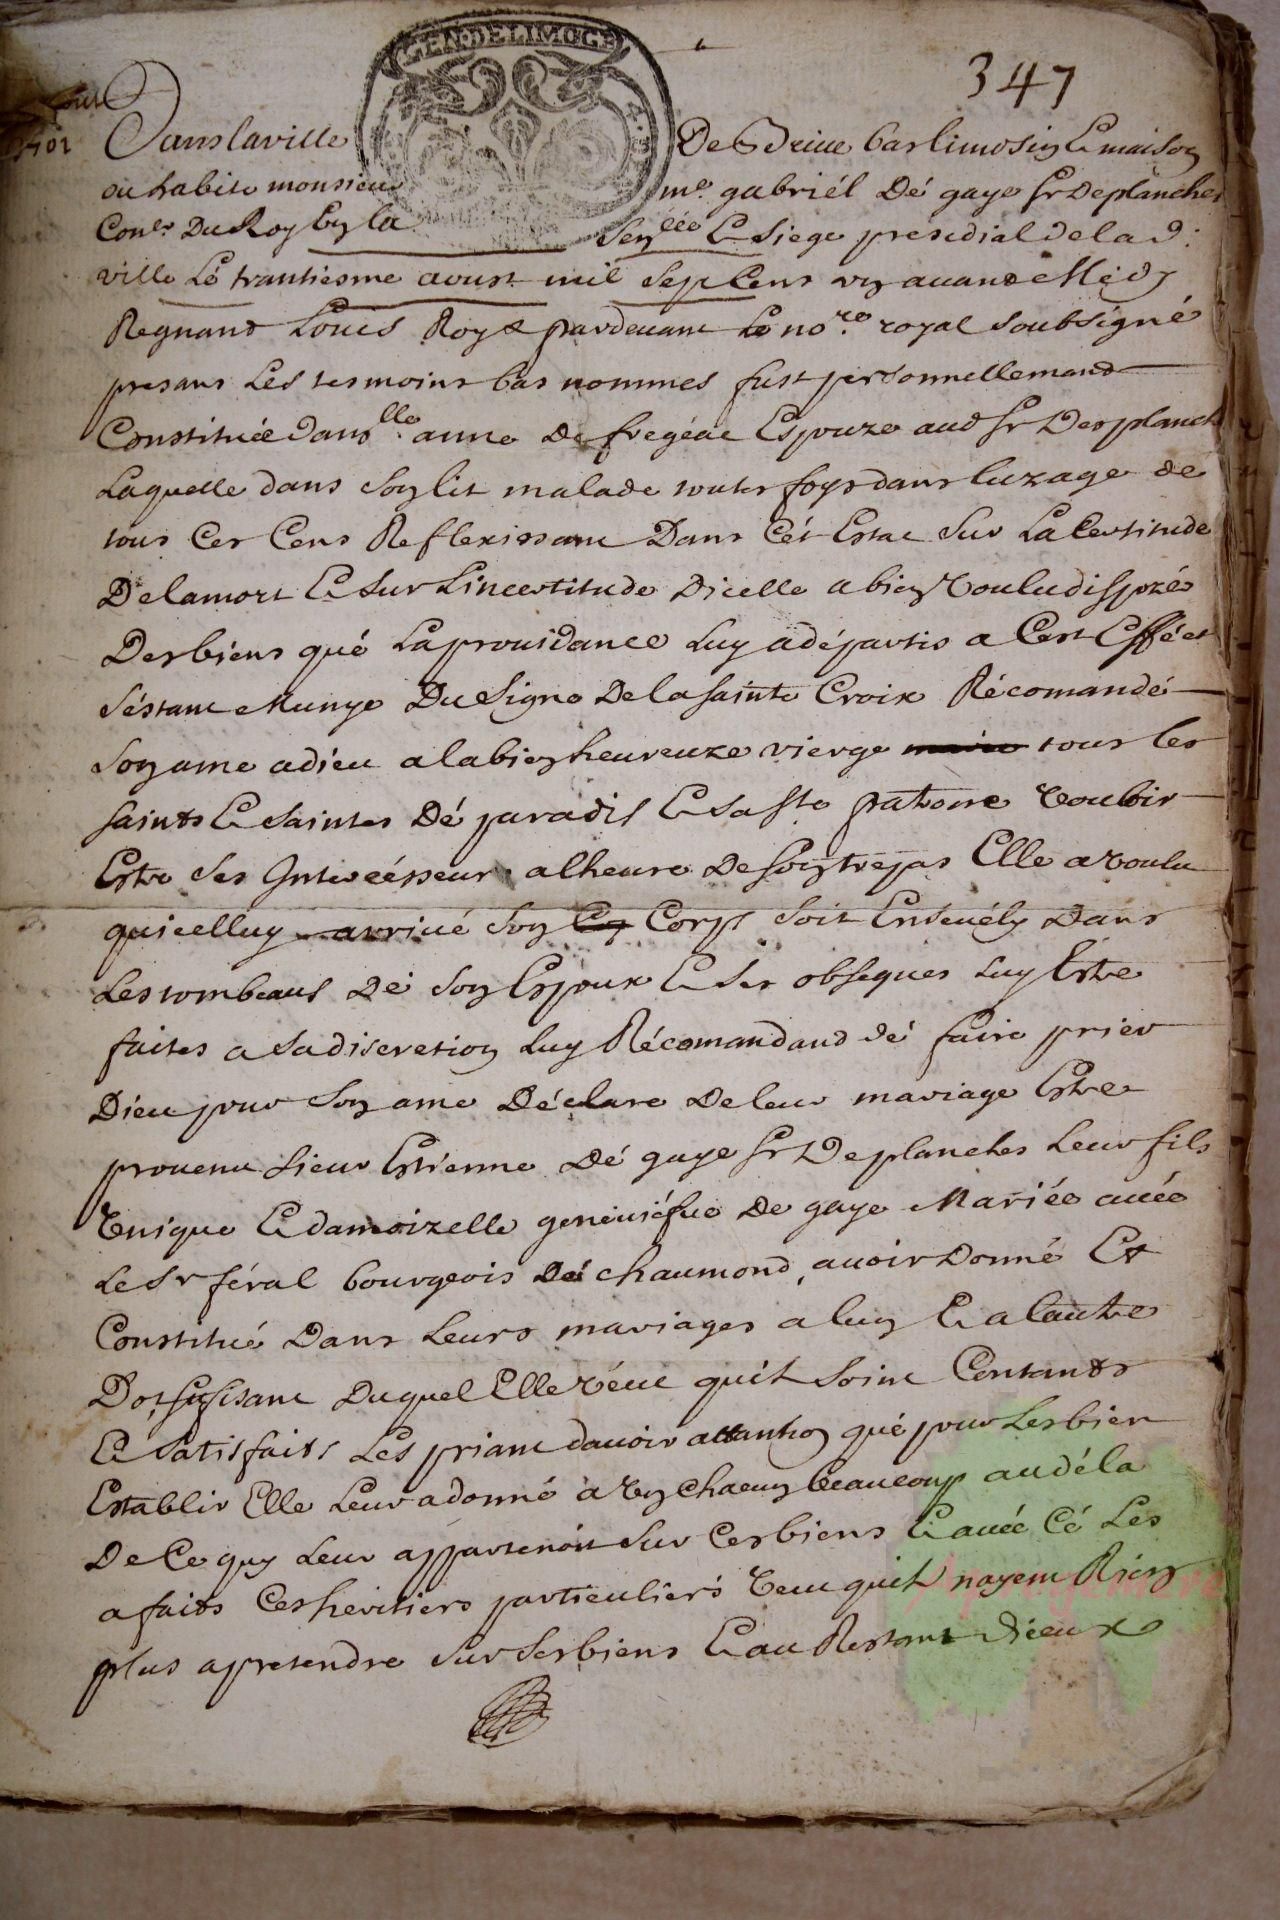 GEN. DE LIMOGE
347
1701
Dans la ville De Brive bas limosin & maison
ou habite monsieur me. gabriél Dé gaye sr Deplanches
Conler. Du Roy En la Senllée & siege presidial de la d:
ville Lé trantiesme aoust mil sept Cens un avant Midy
Regnant Louis Roy & pardevant Le nore. royal soubsigné
presans Les tesmoins bas nommes fust personnellemand
Constituée damlle. anne De fregéac Espouze aud sr Desplanch
Laquelle dans son lit malade toutes foys dans luzage de
tous Ces Cens Reflexissant Dans Cét Estat Sur La Certitude
De la mort & sur Lincertitude Dicelle a bien voulu disposé
Des biens qué La providance Luy a départis a Cest Efféct
Séstant Munye Du Signe De la sainte Croix Récomandé
son ame a dieu a la bien heureuze vierge tous les
saints & saintes Dé paradis & sa ste patrone vouloir
Estre ses Intercésseurs a lheure De son trepas Elle a voulu
quicelluy arrivé son Corps soit Ensevély Dans
Les tombeaus Dé son Espoux & ses obseques Luy Estre
faites a sa discretion Luy Récomandand dé faire prier
Dieu pour son ame Déclare De leur mariage Estre
provenu sieur Estienne Dé gaye sr Deplanches Leur fils
Unique & damoizelle geneviéfve De gaye Mariée avéc
Le Sr féral bourgeois Dé chaumond, avoir Donné Et
Constitué Dans Leurs mariages a lun & a lautre
Dot sufisant Duquel Elle véut quil soint Contants
& satisfaits Les priant davoir attantion qué pour Les bien
Establir Elle Leur a donné a un chacun beaucoup au déla
De Ce quy Leur appartenoit sur Ces biens & avéc Cé Les
a faits Ces heritiers particuliers veut quil nayent Rien
plus a pretendre sur ses biens & au Restant dieux